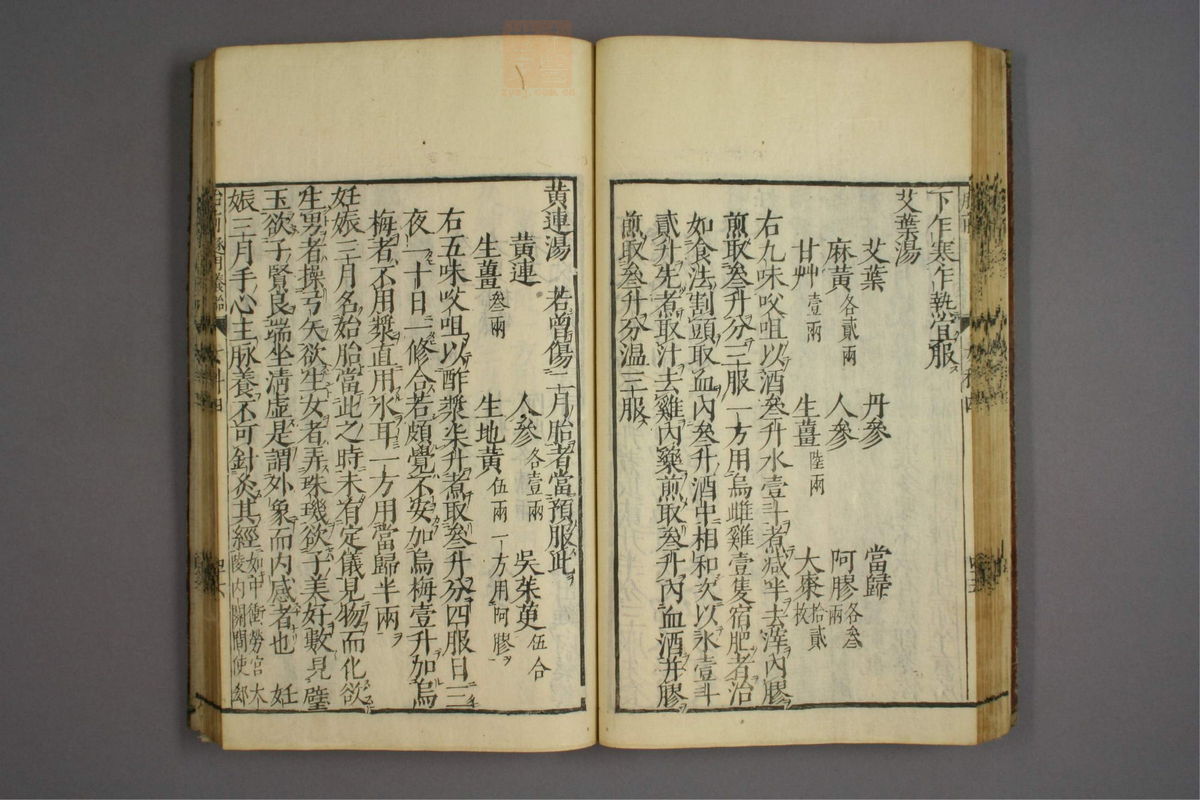 下乍寒乍熱宜服
艾葉湯
艾葉 丹參 當歸
麻黃各貳兩 人參 阿膠各叁兩
甘艸壹兩 生薑陸兩 大棗拾貳枚
右九味㕮咀以酒叁升水壹斗煮減半去滓內膠
煎取叁升分三服一方用烏雌雞壹隻宿肥者治
如食法割頭取血內叁升酒中相和次以水壹斗
貳升先煮取汁去雞內藥煎取叁升內血酒并膠
煎取叁升分溫三服
黃連湯 若曾傷二月胎者當預服此
黃連 人參各壹兩 吳茱萸伍合
生薑叁兩 生地黃伍兩一方用阿膠
右五味㕮咀以酢漿柒升煮取叁升分四服日三
夜一十日一修合若頗覺不安加烏梅壹升加烏
梅者不用漿直用水耳一方用當歸半兩
妊娠三月名始胎當此之時未有定儀見物而化欲
生男者操弓矢欲生女者弄珠璣欲子美好數見璧
玉欲子賢良端坐清虛是謂外象而內感者也 妊
娠三月手心主脉養不可針灸其經如中衝勞宮大陵內關間使郄